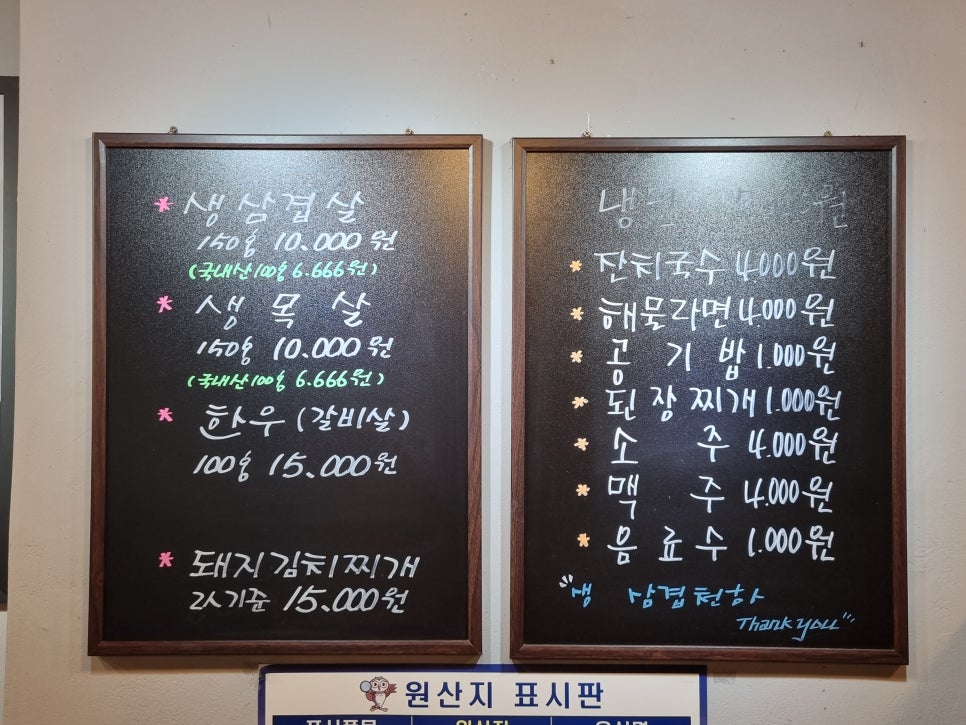 * 생삼겹살
150g 10.000원
(국내산100g 6.666원)
* 생목살
150g 10.000원
(국내산100g 6.666원)
* 한우 (갈비살)
100g 15.000원
* 돼지김치찌개
2人기준 15.000원
냉 원
* 잔치국수 4.000원
* 해물라면 4.000원
* 공기밥 1.000원
* 된장찌개 1.000원
* 소주 4.000원
* 맥주 4.000원
* 음료수 1.000원
"생 삼겹천하
Thank you"
원산지 표시판
표시품목 원산지 음식명